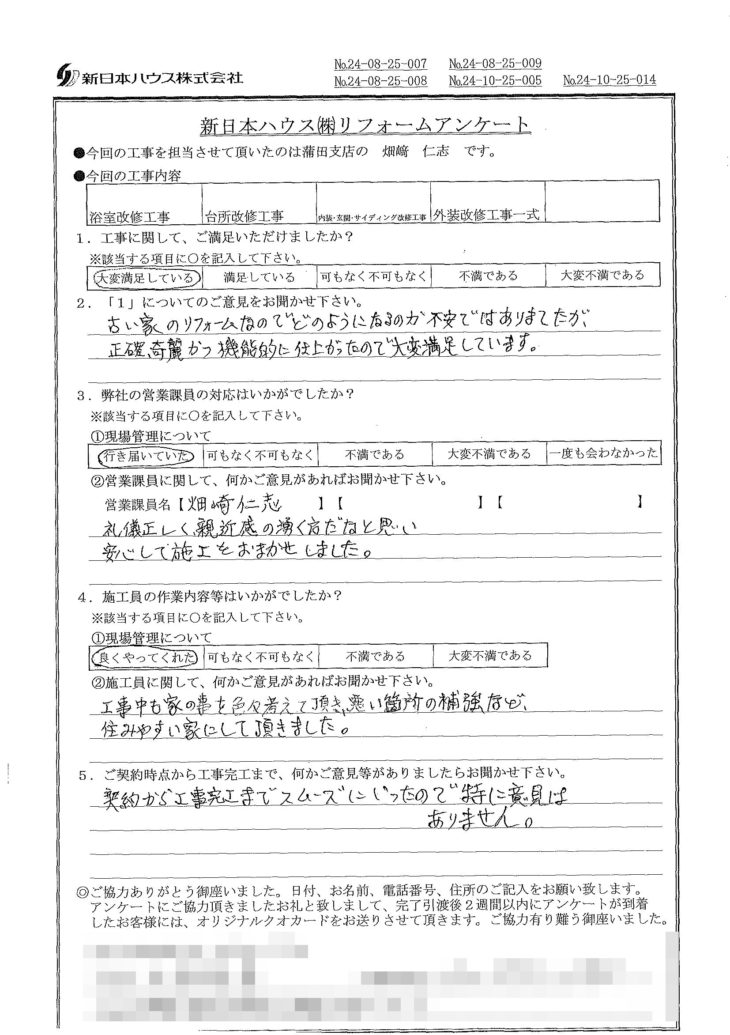 新日本ハウス株式会社
№24-08-25-007 №24-08-25-009
№24-08-25-008 №24-10-25-005 №24-10-25-014
新日本ハウス㈱リフォームアンケート
●今回の工事を担当させて頂いたのは蒲田支店の 畑﨑 仁志 です。
●今回の工事内容
浴室改修工事 台所改修工事 内装・玄関・サイディング改修工事 外装改修工事一式
1．工事に関して、ご満足いただけましたか？
※該当する項目に○を記入して下さい。
大変満足している 満足している 可もなく不可もなく 不満である 大変不満である
2．「1」についてのご意見をお聞かせ下さい。
古い家のリフォームなのでどのようになるのか不安ではありましたが、
正確、奇麗かつ機能的に仕上がったので大変満足しています。
3．弊社の営業課員の対応はいかがでしたか？
※該当する項目に○を記入して下さい。
①現場管理について
行き届いていた 可もなく不可もなく 不満である 大変不満である 一度も会わなかった
②営業課員に関して、何かご意見があればお聞かせ下さい。
営業課員名【畑崎仁志 】【 】【 】
礼儀正しく、親近感の湧く方だなと思い
安心して施工をおまかせしました。
4．施工員の作業内容等はいかがでしたか？
※該当する項目に○を記入して下さい。
①現場管理について
良くやってくれた 可もなく不可もなく 不満である 大変不満である
②施工員に関して、何かご意見があればお聞かせ下さい。
工事中も家の事を色々考えて頂き、悪い箇所の補強など、
住みやすい家にして頂きました。
5．ご契約時点から工事完工まで、何かご意見等がありましたらお聞かせ下さい。
契約から工事完工までスムーズにいったので特に意見は
ありません。
◎ご協力ありがとう御座いました。日付、お名前、電話番号、住所のご記入をお願い致します。
アンケートにご協力頂きましたお礼と致しまして、完了引渡後2週間以内にアンケートが到着
したお客様には、オリジナルクオカードをお送りさせて頂きます。ご協力有り難う御座いました。